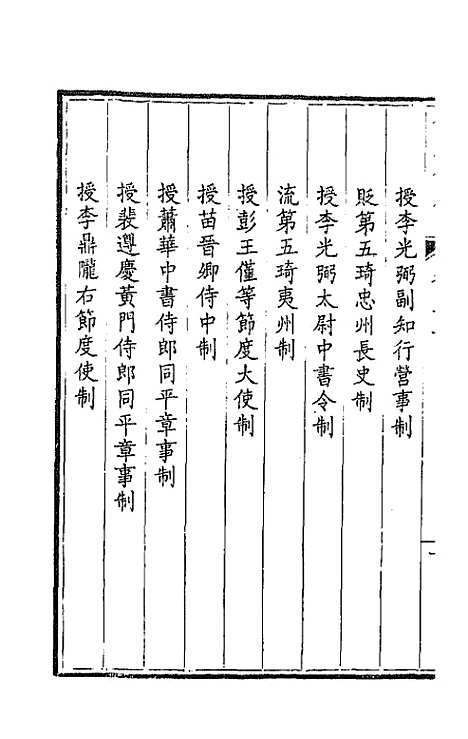 授李光弼副知行營事制
貶第五琦忠州長史制
授李光弼太尉中書令制
流第五琦夷州制
授彭王僅等節度大使制
授苗晉卿侍中制
授蕭華中書侍郎同平章事制
授裴遵慶黃門侍郎同平章事制
授李鼎隴右節度使制